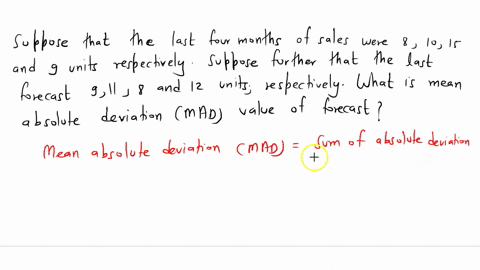 Suppose that the last four months of sales were 8, 10, 15
and 9 units respectively. Suppose further that the last
forecast 9, 11, 8 and 12 units, respectively. What is mean
absolute deviation (MAD) value of forecast?
Mean absolute deviation (MAD) = Sum of absolute deviation